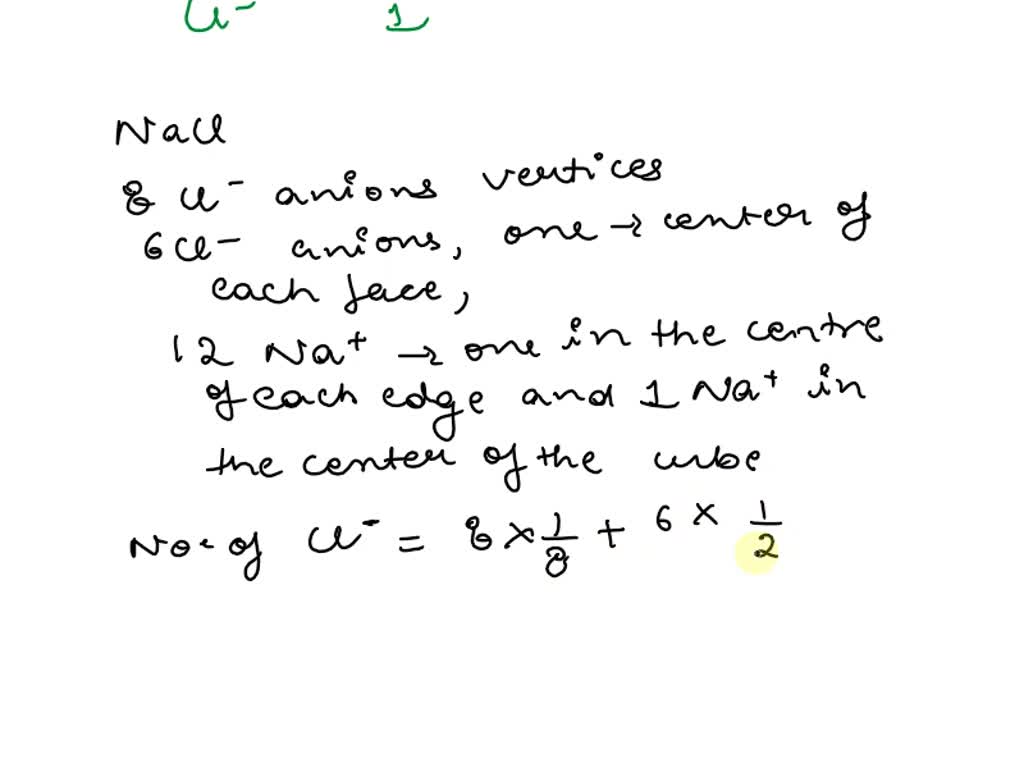 Cl⁻ 1
NaCl
8 Cl⁻ anions vertices
6 Cl⁻ anions, one → center of
each face,
12 Na⁺ → one in the centre
of each edge and 1 Na⁺ in
the center of the cube
No. of Cl⁻ = 8 × 1/8 + 6 × 1/2